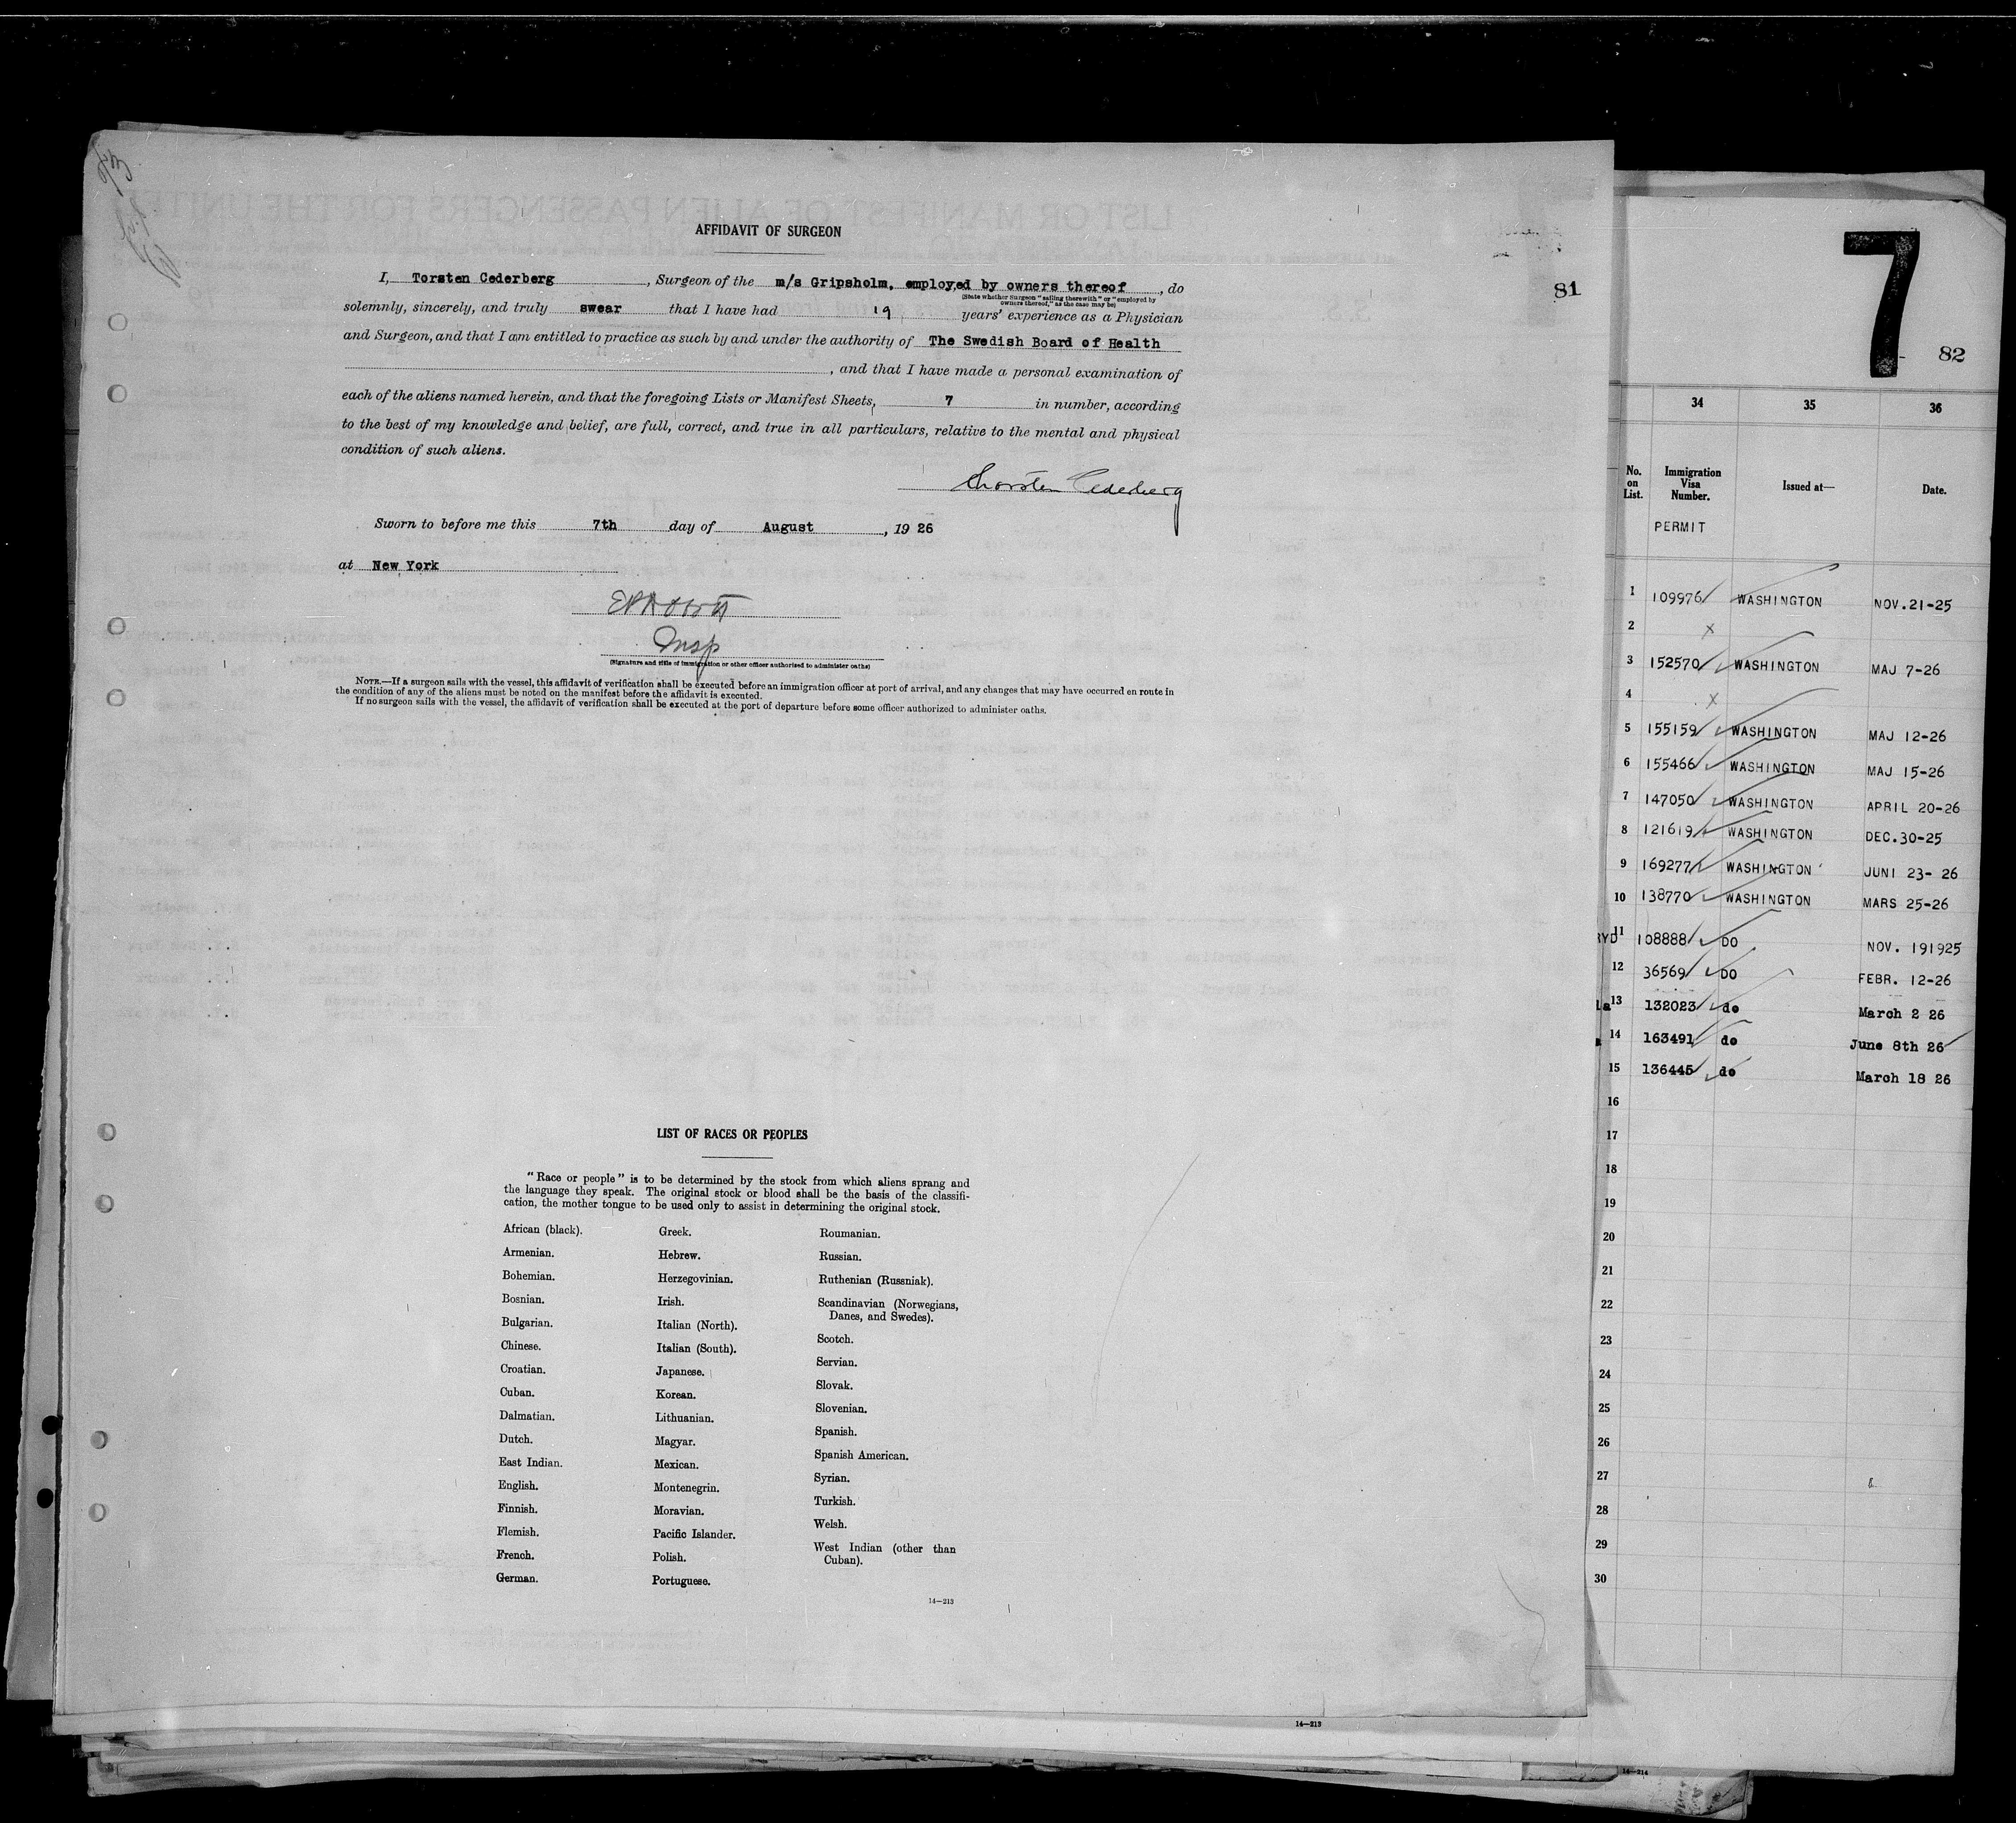 AFFIDAVIT OF SURGEON
81
I, Torsten Cederberg, Surgeon of the m/s Gripsholm, employed by owners thereof, do
(State whether Surgeon "sailing therewith" or "employed by
owners thereof," as the case may be)
solemnly, sincerely, and truly swear that I have had 19 years' experience as a Physician
and Surgeon, and that I am entitled to practice as such by and under the authority of The Swedish Board of Health
, and that I have made a personal examination of
each of the aliens named herein, and that the foregoing Lists or Manifest Sheets, 7 in number, according
to the best of my knowledge and belief, are full, correct, and true in all particulars, relative to the mental and physical
condition of such aliens.
Thorsten Cederberg
Sworn to before me this 7th day of August, 1926
at New York
Insp
(Signature and title of immigration or other officer authorized to administer oaths)
NOTE.—If a surgeon sails with the vessel, this affidavit of verification shall be executed before an immigration officer at port of arrival, and any changes that may have occurred en route in
the condition of any of the aliens must be noted on the manifest before the affidavit is executed.
If no surgeon sails with the vessel, the affidavit of verification shall be executed at the port of departure before some officer authorized to administer oaths.
LIST OF RACES OR PEOPLES
"Race or people" is to be determined by the stock from which aliens sprang and
the language they speak. The original stock or blood shall be the basis of the classifi-
cation, the mother tongue to be used only to assist in determining the original stock.
African (black).
Armenian.
Bohemian.
Bosnian.
Bulgarian.
Chinese.
Croatian.
Cuban.
Dalmatian.
Dutch.
East Indian.
English.
Finnish.
Flemish.
French.
German.
Greek.
Hebrew.
Herzegovinian.
Irish.
Italian (North).
Italian (South).
Japanese.
Korean.
Lithuanian.
Magyar.
Mexican.
Montenegrin.
Moravian.
Pacific Islander.
Polish.
Portuguese.
Roumanian.
Russian.
Ruthenian (Russniak).
Scandinavian (Norwegians,
Danes, and Swedes).
Scotch.
Servian.
Slovak.
Slovenian.
Spanish.
Spanish American.
Syrian.
Turkish.
Welsh.
West Indian (other than
Cuban).
14—213
14—213
7
82
34 35 36
No. on List. Immigration Visa Number. Issued at— Date.
PERMIT
1 109976 WASHINGTON NOV.21-25
2 x
3 152570 WASHINGTON MAJ 7-26
4 x
5 155159 WASHINGTON MAJ 12-26
6 155466 WASHINGTON MAJ 15-26
7 147050 WASHINGTON APRIL 20-26
8 121619 WASHINGTON DEC.30-25
9 169277 WASHINGTON JUNI 23- 26
10 138770 WASHINGTON MARS 25-26
RYD 11 108888 DO NOV. 191925
12 36569 DO FEBR. 12-26
La 13 132023 do March 2 26
14 163491 do June 8th 26
15 136445 do March 18 26
16
17
18
19
20
21
22
23
24
25
26
27
28
29
30
14—214